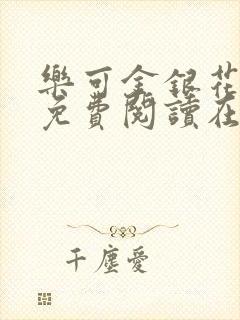 樂可金銀花
免費閱讀在
千塵愛